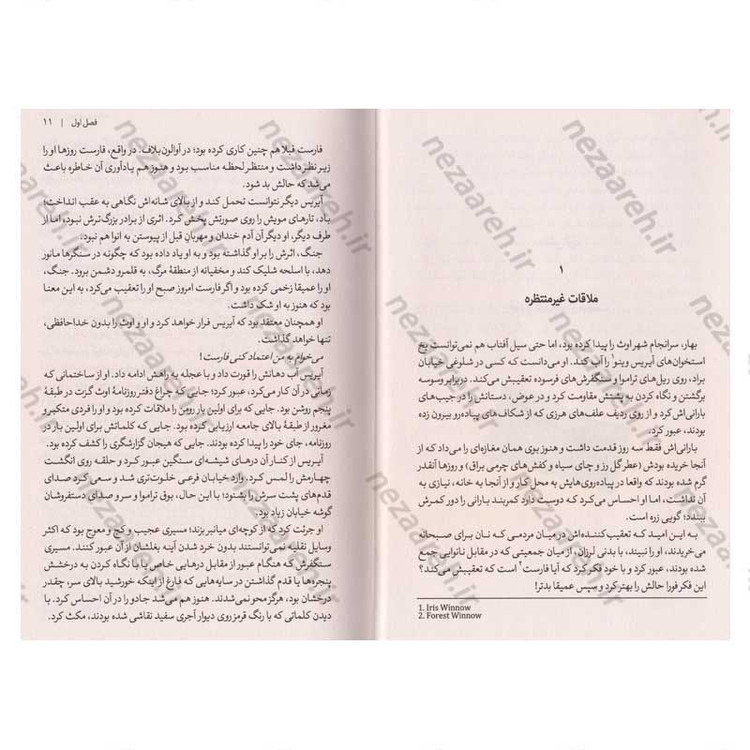 ۱
ملاقات غیرمنتظره
بهار، سرانجام شهر اوث را پیدا کرده بود، اما حتی سیل آفتاب هم نمی‌توانست یخ
استخوان‌های آیریس وینو۱ را آب کند. او می‌دانست که کسی در شلوغی خیابان
براد، روی ریل‌های تراموا و سنگفرش‌های فرسوده تعقیبش می‌کند. دربرابر وسوسه
برگشتن و نگاه کردن به پشتش مقاومت کرد و در عوض، دستانش را در جیب‌های
بارانی‌اش فرو کرد و از روی ردیف علف‌های هرزی که از شکاف‌های پیاده‌رو بیرون زده
بودند، عبور کرد.
بارانی‌اش فقط سه روز قدمت داشت و هنوز بوی همان مغازه‌ای را می‌داد که از
آنجا خریده بودش (عطر گل رز و چای سیاه و کفش‌های چرمی براق) و روزها آنقدر
گرم شده بودند که واقعا در پیاده‌روی‌هایش به محل کار و از آنجا به خانه، نیازی به
آن نداشت. اما او احساس می‌کرد که دوست دارد کمربند بارانی را دور کمرش
ببندد؛ گویی زره است.
به این امید که تعقیب‌کننده‌اش در میان مردمی که نان برای صبحانه
می‌خریدند، او را نبیند، با بدنی لرزان، از میان جمعیتی که در مقابل نانوایی جمع
شده بودند، عبور کرد و با خود فکر کرد که آیا فارست۲ است که تعقیبش می‌کند؟
این فکر فورا حالش را بهتر کرد و سپس عمیقا بدتر!
1. Iris Winnow
2. Forest Winnow
فصل اول | ۱۱
فارست قبلا هم چنین کاری کرده بود؛ در آوالون بلاف. در واقع، فارست روزها او را
زیر نظر داشت و منتظر لحظه مناسب بود و هنوز هم یادآوری آن خاطره باعث
می‌شد که حالش بد شود.
آیریس دیگر نتوانست تحمل کند و از بالای شانه‌اش نگاهی به عقب انداخت؛
باد، تارهای مویش را روی صورتش پخش کرد. اثری از برادر بزرگ‌ترش نبود، اما از
طرف دیگر، او دیگر آن آدم خندان و مهربانِ قبل از پیوستن به انوا هم نبود.
جنگ، اثرش را بر او گذاشته بود و به او یاد داده بود که چگونه در سنگرها مانور
دهد، با اسلحه شلیک کند و مخفیانه از منطقهٔ مرگ، به قلمرو دشمن برود. جنگ،
او را عمیقا زخمی کرده بود و اگر فارست امروز صبح او را تعقیب می‌کرد، به این معنا
بود که هنوز به او شک داشت.
او همچنان معتقد بود که آیریس فرار خواهد کرد و او و اوث را بدون خداحافظی،
تنها خواهد گذاشت.
می‌خوام به من اعتماد کنی فارست!
آیریس آب دهانش را قورت داد و با عجله به راهش ادامه داد. او از ساختمانی که
زمانی در آن کار می‌کرد، عبور کرد؛ جایی که چراغ دفتر روزنامهٔ اوث گزت در طبقهٔ
پنجم روشن بود. جایی که برای اولین بار رومن را ملاقات کرده بود و او را فردی متکبر و
مغرور از طبقهٔ بالای جامعه ارزیابی کرده بود. جایی که کلماتش برای اولین بار در
روزنامه، جای خود را پیدا کرده بودند. جایی که هیجان گزارشگری را کشف کرده بود.
آیریس از کنار آن درهای شیشه‌ای سنگین عبور کرد و حلقه روی انگشت
چهارمش را لمس کرد. وارد خیابان فرعی خلوت‌تری شد و سعی کرد صدای
قدم‌های پشت سرش را بشنود؛ با این حال، بوق تراموا و سر و صدای دستفروشان
گوشه خیابان زیاد بود.
او جرئت کرد که از کوچه‌ای میانبر بزند؛ مسیری عجیب و کج و معوج بود که اکثر
وسایل نقلیه نمی‌توانستند بدون خرد شدن آینه بغلشان از آن عبور کنند. مسیری
سنگفرش که هنگام عبور از مقابل درهایی خاص یا نگاه کردن به درخشش
پنجره‌ها یا قدم گذاشتن در سایه‌هایی که فارغ از اینکه خورشید بالای سر، چقدر
درخشان بود، هرگز محو نمی‌شدند. هنوز هم می‌شد جادو را در آن احساس کرد. با
دیدن کلماتی که با رنگ قرمز روی دیوار آجری سفید نقاشی شده بودند، مکث کرد.
nezaareh.ir